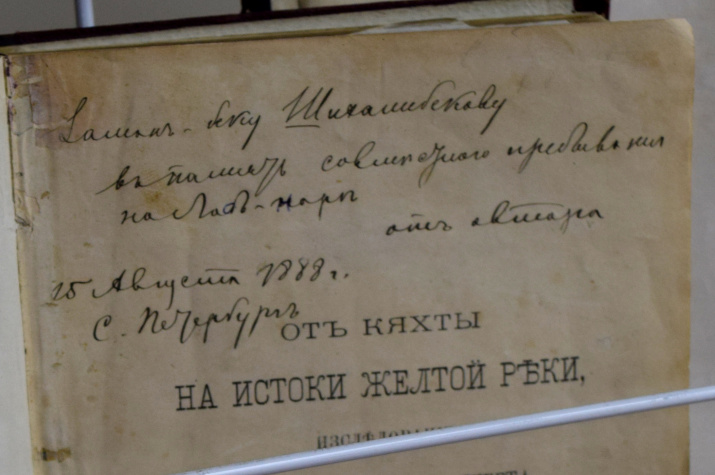 Заман-беку Шихалибекову
въ память совместного пребывания
на Лобъ-норъ
отъ автора
15 Августа 1888 г.
С. Петербургъ
ОТЪ КЯХТЫ
НА ИСТОКИ ЖЕЛТОЙ РѢКИ,